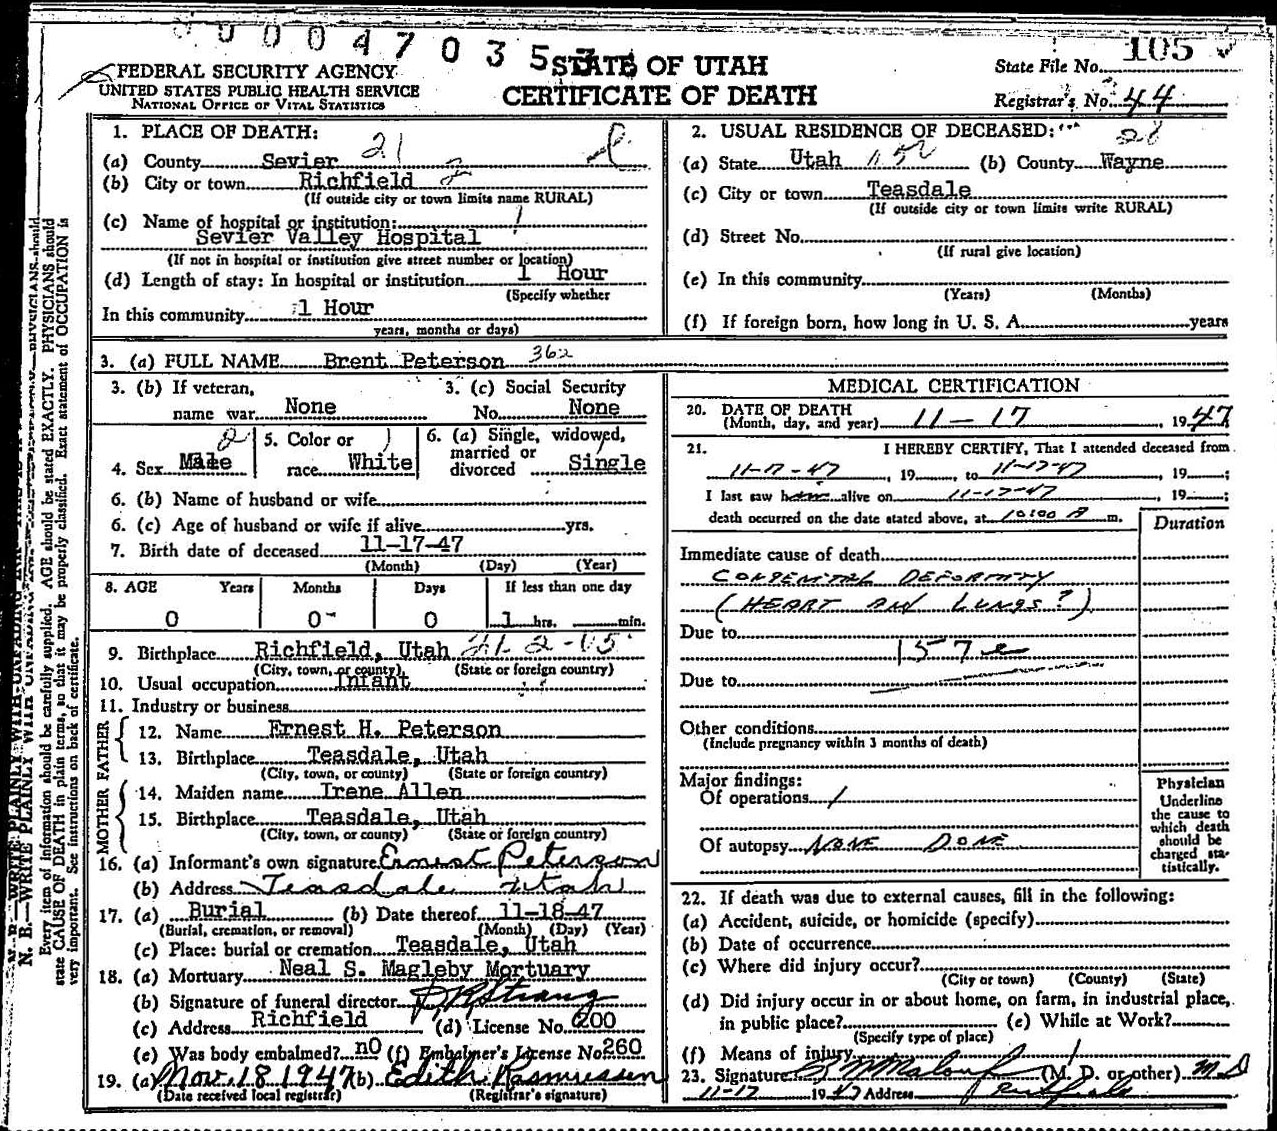 0000470353
STATE OF UTAH
CERTIFICATE OF DEATH
FEDERAL SECURITY AGENCY
UNITED STATES PUBLIC HEALTH SERVICE
NATIONAL OFFICE OF VITAL STATISTICS
State File No. 105
Registrar's No. 44
1. PLACE OF DEATH: 21
(a) County Sevier
(b) City or town Richfield 2
(If outside city or town limits name RURAL)
(c) Name of hospital or institution: 1
Sevier Valley Hospital
(If not in hospital or institution give street number or location)
(d) Length of stay: In hospital or institution 1 Hour
(Specify whether
In this community 1 Hour
years, months or days)
2. USUAL RESIDENCE OF DECEASED: 28
(a) State Utah (b) County Wayne
(c) City or town Teasdale
(If outside city or town limits write RURAL)
(d) Street No.
(If rural give location)
(e) In this community
(Years) (Months)
(f) If foreign born, how long in U. S. A. years
3. (a) FULL NAME Brent Peterson 362
3. (b) If veteran, 3. (c) Social Security
name war None No. None
4. Sex Male 5. Color or race White 6. (a) Single, widowed, married or divorced Single
6. (b) Name of husband or wife
6. (c) Age of husband or wife if alive yrs.
7. Birth date of deceased 11-17-47
(Month) (Day) (Year)
8. AGE Years Months Days If less than one day
0 0 0 1 hrs. min.
9. Birthplace Richfield, Utah
(City, town, or county) (State or foreign country)
10. Usual occupation Infant
11. Industry or business
FATHER
12. Name Ernest H. Peterson
13. Birthplace Teasdale, Utah
(City, town, or county) (State or foreign country)
MOTHER
14. Maiden name Irene Allen
15. Birthplace Teasdale, Utah
(City, town, or county) (State or foreign country)
16. (a) Informant's own signature Ernest Peterson
(b) Address Teasdale Utah
17. (a) Burial (b) Date thereof 11-18-47
(Burial, cremation, or removal) (Month) (Day) (Year)
(c) Place: burial or cremation Teasdale, Utah
18. (a) Mortuary Neal S. Magleby Mortuary
(b) Signature of funeral director
(c) Address Richfield (d) License No. 200
(e) Was body embalmed? no (f) Embalmer's License No. 260
19. (a) Nov. 18 1947 (b) Edith Rasmussen
(Date received local registrar) (Registrar's signature)
MEDICAL CERTIFICATION
20. DATE OF DEATH
(Month, day, and year) 11-17, 1947
21. I HEREBY CERTIFY, That I attended deceased from
11-17-47, 19 , to 11-17-47 19 ;
I last saw h alive on 11-17-47, 19 ;
death occurred on the date stated above, at 10:00 A m.
Duration
Immediate cause of death
CONGENITAL DEFORMITY
(HEART LUNGS?)
Due to
157e
Due to
Other conditions
(Include pregnancy within 3 months of death)
Major findings:
Of operations /
Of autopsy NONE DONE
Physician
Underline
the cause to
which death
should be
charged sta-
tistically.
22. If death was due to external causes, fill in the following:
(a) Accident, suicide, or homicide (specify)
(b) Date of occurrence
(c) Where did injury occur?
(City or town) (County) (State)
(d) Did injury occur in or about home, on farm, in industrial place,
in public place? (e) While at Work?
(Specify type of place)
(f) Means of injury
23. Signature (M. D. or other) M D
11-17 1947 Address Richfield
N. B.—WRITE PLAINLY WITH UNFADING
Every item of information should be carefully supplied. AGE should be stated EXACTLY. PHYSICIANS should
state CAUSE OF DEATH in plain terms, so that it may be properly classified. Exact statement of OCCUPATION is
very important. See instructions on back of certificate.